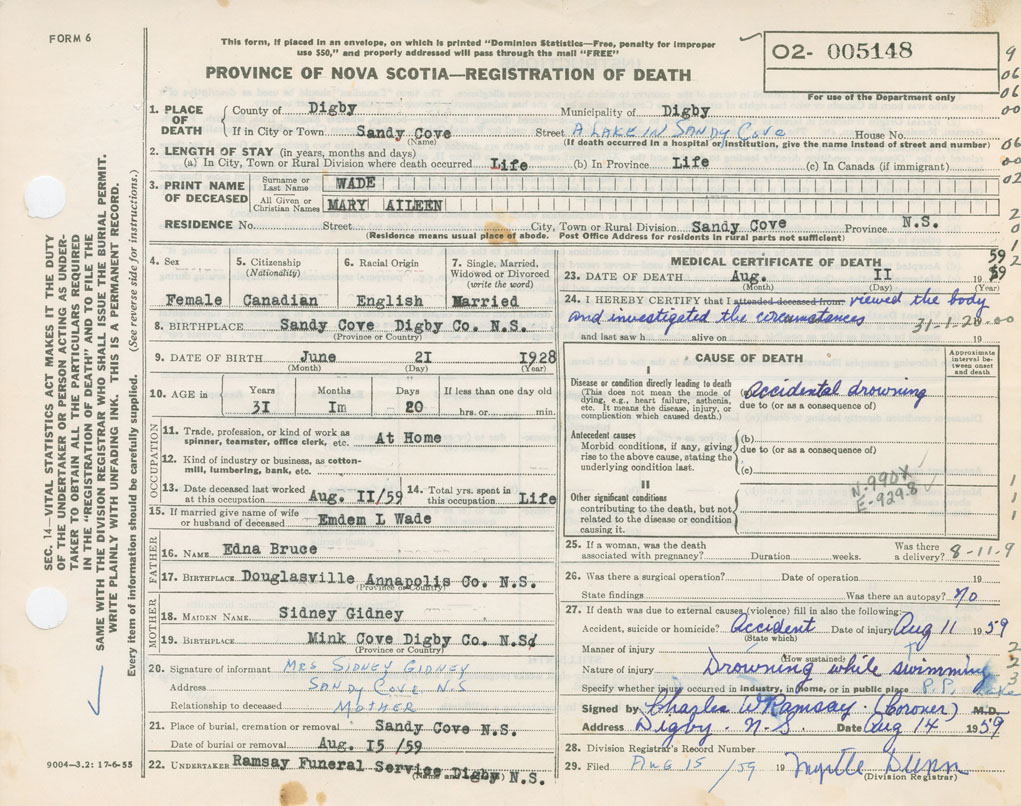 FORM 6
This form, if placed in an envelope, on which is printed "Dominion Statistics—Free, penalty for improper
use $50," and properly addressed will pass through the mail "FREE"
PROVINCE OF NOVA SCOTIA—REGISTRATION OF DEATH
O2- 005148
For use of the Department only
SEC. 14—VITAL STATISTICS ACT MAKES IT THE DUTY
OF THE UNDERTAKER OR PERSON ACTING AS UNDER-
TAKER TO OBTAIN ALL THE PARTICULARS REQUIRED
IN THE "REGISTRATION OF DEATH" AND TO FILE THE
SAME WITH THE DIVISION REGISTRAR WHO SHALL ISSUE THE BURIAL PERMIT.
WRITE PLAINLY WITH UNFADING INK. THIS IS A PERMANENT RECORD.
Every item of information should be carefully supplied. (See reverse side for instructions.)
1. PLACE OF DEATH
County of Digby Municipality of Digby
If in City or Town Sandy Cove Street A LAKE IN SANDY COVE House No.
(Name) (If death occurred in a hospital or institution, give the name instead of street and number)
2. LENGTH OF STAY (in years, months and days)
(a) In City, Town or Rural Division where death occurred Life (b) In Province Life (c) In Canada (if immigrant)
3. PRINT NAME OF DECEASED
Surname or Last Name WADE
All Given or Christian Names MARY AILEEN
RESIDENCE No. Street City, Town or Rural Division Sandy Cove Province N.S.
(Residence means usual place of abode. Post Office Address for residents in rural parts not sufficient)
4. Sex 5. Citizenship (Nationality) 6. Racial Origin 7. Single, Married, Widowed or Divorced (write the word)
Female Canadian English Married
8. BIRTHPLACE Sandy Cove Digby Co. N.S.
(Province or Country)
9. DATE OF BIRTH June 2I I928
(Month) (Day) (Year)
10. AGE in Years Months Days If less than one day old
3I Im 20 hrs. or min.
OCCUPATION
11. Trade, profession, or kind of work as
spinner, teamster, office clerk, etc. At Home
12. Kind of industry or business, as cotton-
mill, lumbering, bank, etc.
13. Date deceased last worked
at this occupation Aug. II/59
14. Total yrs. spent in
this occupation Life
15. If married give name of wife
or husband of deceased Emdem L Wade
FATHER
16. NAME Edna Bruce
17. BIRTHPLACE Douglasville Annapolis Co. N.S.
(Province or Country)
MOTHER
18. MAIDEN NAME Sidney Gidney
19. BIRTHPLACE Mink Cove Digby Co. N.S
(Province or Country)
20. Signature of informant MRS SIDNEY GIDNEY
Address SANDY COVE N.S
Relationship to deceased MOTHER
21. Place of burial, cremation or removal Sandy Cove N.S.
Date of burial or removal Aug. I5 /59
22. UNDERTAKER Ramsay Funeral Service Digby N.S.
(Name and Address)
9004—3.2: 17-6-55
MEDICAL CERTIFICATE OF DEATH
59
23. DATE OF DEATH Aug. II 19 59
(Month) (Day) (Year)
24. I HEREBY CERTIFY that I attended deceased from: viewed the body
and investigated the circumstances 31-1-20-00
and last saw h alive on 19
CAUSE OF DEATH
Approximate interval between onset and death
I
Disease or condition directly leading to death
(This does not mean the mode of
dying, e.g., heart failure, asthenia,
etc. It means the disease, injury, or
complication which caused death.)
Accidental drowning
due to (or as a consequence of)
Antecedent causes
Morbid conditions, if any, giving
rise to the above cause, stating the
underlying condition last.
(b)
due to (or as a consequence of)
(c)
N-990X
E-929.8
II
Other significant conditions
contributing to the death, but not
related to the disease or condition
causing it.
25. If a woman, was the death
associated with pregnancy? Duration weeks. Was there a delivery? 8-11-9
26. Was there a surgical operation? Date of operation 19
State findings Was there an autopsy? No
27. If death was due to external causes (violence) fill in also the following:
Accident, suicide or homicide? Accident Date of injury Aug 11 1959
(State which)
Manner of injury
(How sustained)
Nature of injury Drowning while swimming
Specify whether injury occurred in industry, in home, or in public place P.P. Lake
Signed by Charles W Ramsay (Coroner) M.D.
Address Digby. N-S. Date Aug 14 1959
28. Division Registrar's Record Number
29. Filed Aug 15 /59 19 Myrtle Dunn
(Division Registrar)
9
06
06
00
06
00
02
2
0
1
2
1
1
1
2
2
3